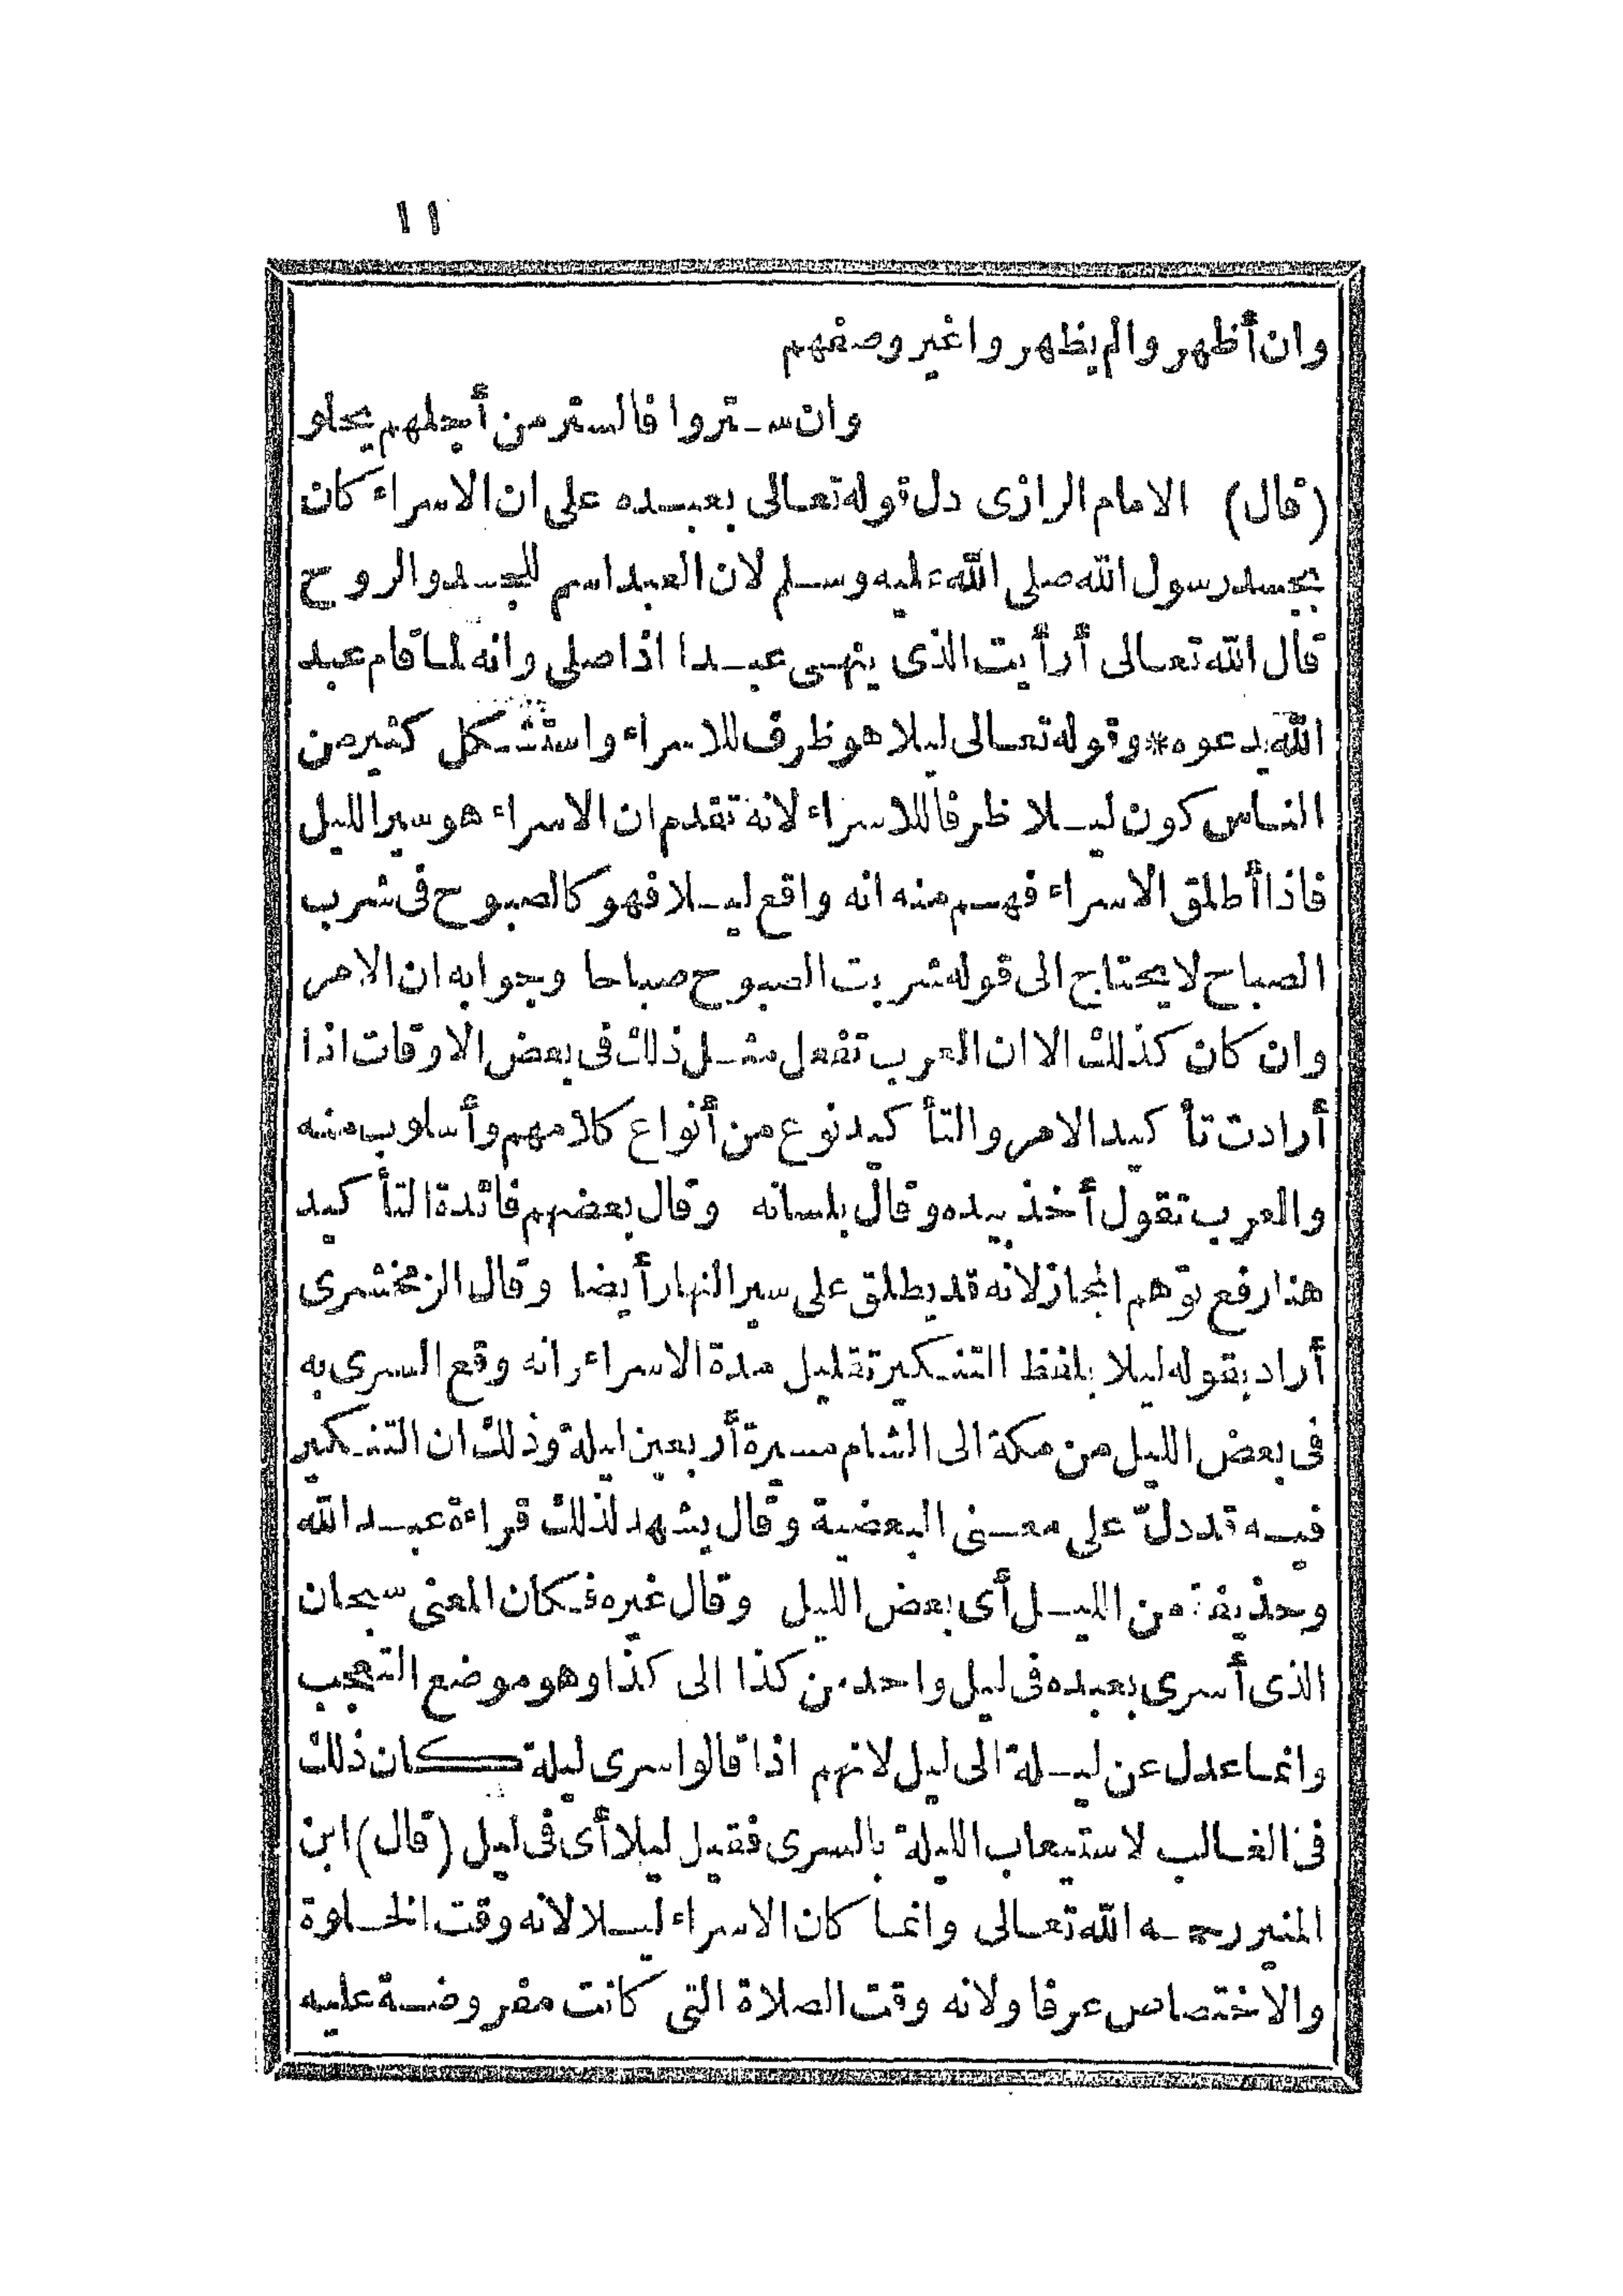 ١١
وان أظهروا لم يظهروا غير وصفهم
وان ستروا فالستر من أجلهم يحلو
(قال) الامام الرازى دل قوله تعالى بعبده على ان الاسراء كان
بجسد رسول الله صلى الله عليه وسلم لان العبد اسم للجسد والروح
قال الله تعالى أرأيت الذى ينهى عبدا اذا صلى وانه لما قام عبد
الله يدعوه * وقوله تعالى ليلا هو ظرف للاسراء واستشكل كثير من
الناس كون ليلا ظرفا للاسراء لانه تقدم ان الاسراء هو سير الليل
فاذا أطلق الاسراء فهم منه انه واقع ليلا فهو كالصبوح فى شرب
الصباح لا يحتاج الى قوله شربت الصبوح صباحا وجوابه ان الامر
وان كان كذلك الا ان العرب تفعل مثل ذلك فى بعض الاوقات اذا
أرادت تأكيد الامر والتأكيد نوع من أنواع كلامهم وأسلوب منه
والعرب تقول أخذ بيده وقال بلسانه وقال بعضهم فائدة التأكيد
هنا رفع توّهم المجاز لانه قد يطلق على سير النهار أيضا وقال الزمخشرى
أراد بقوله ليلا بلفظ التنكير تقليل مدة الاسراء وانه وقع السرى به
فى بعض الليل من مكة الى الشام مسيرة أربعين ليلة وذلك ان التنكير
فيه قد دلّ على معنى البعضية وقال يشهد لذلك قراءة عبد الله
وحذيفة من الليل أى بعض الليل وقال غيره فكان المعنى سبحان
الذى أسرى بعبده فى ليل واحد من كذا الى كذا وهو موضع التعجب
وانما عدل عن ليلة الى ليل لانهم اذا قالوا سرى ليلة كان ذلك
فى الغالب لاستيعاب الليلة بالسرى فقيل ليلا أى فى ليل (قال) ابن
المنير رحمه الله تعالى وانما كان الاسراء ليلا لانه وقت الخلوة
والاختصاص عرفا ولانه وقت الصلاة التى كانت مفروضة عليه